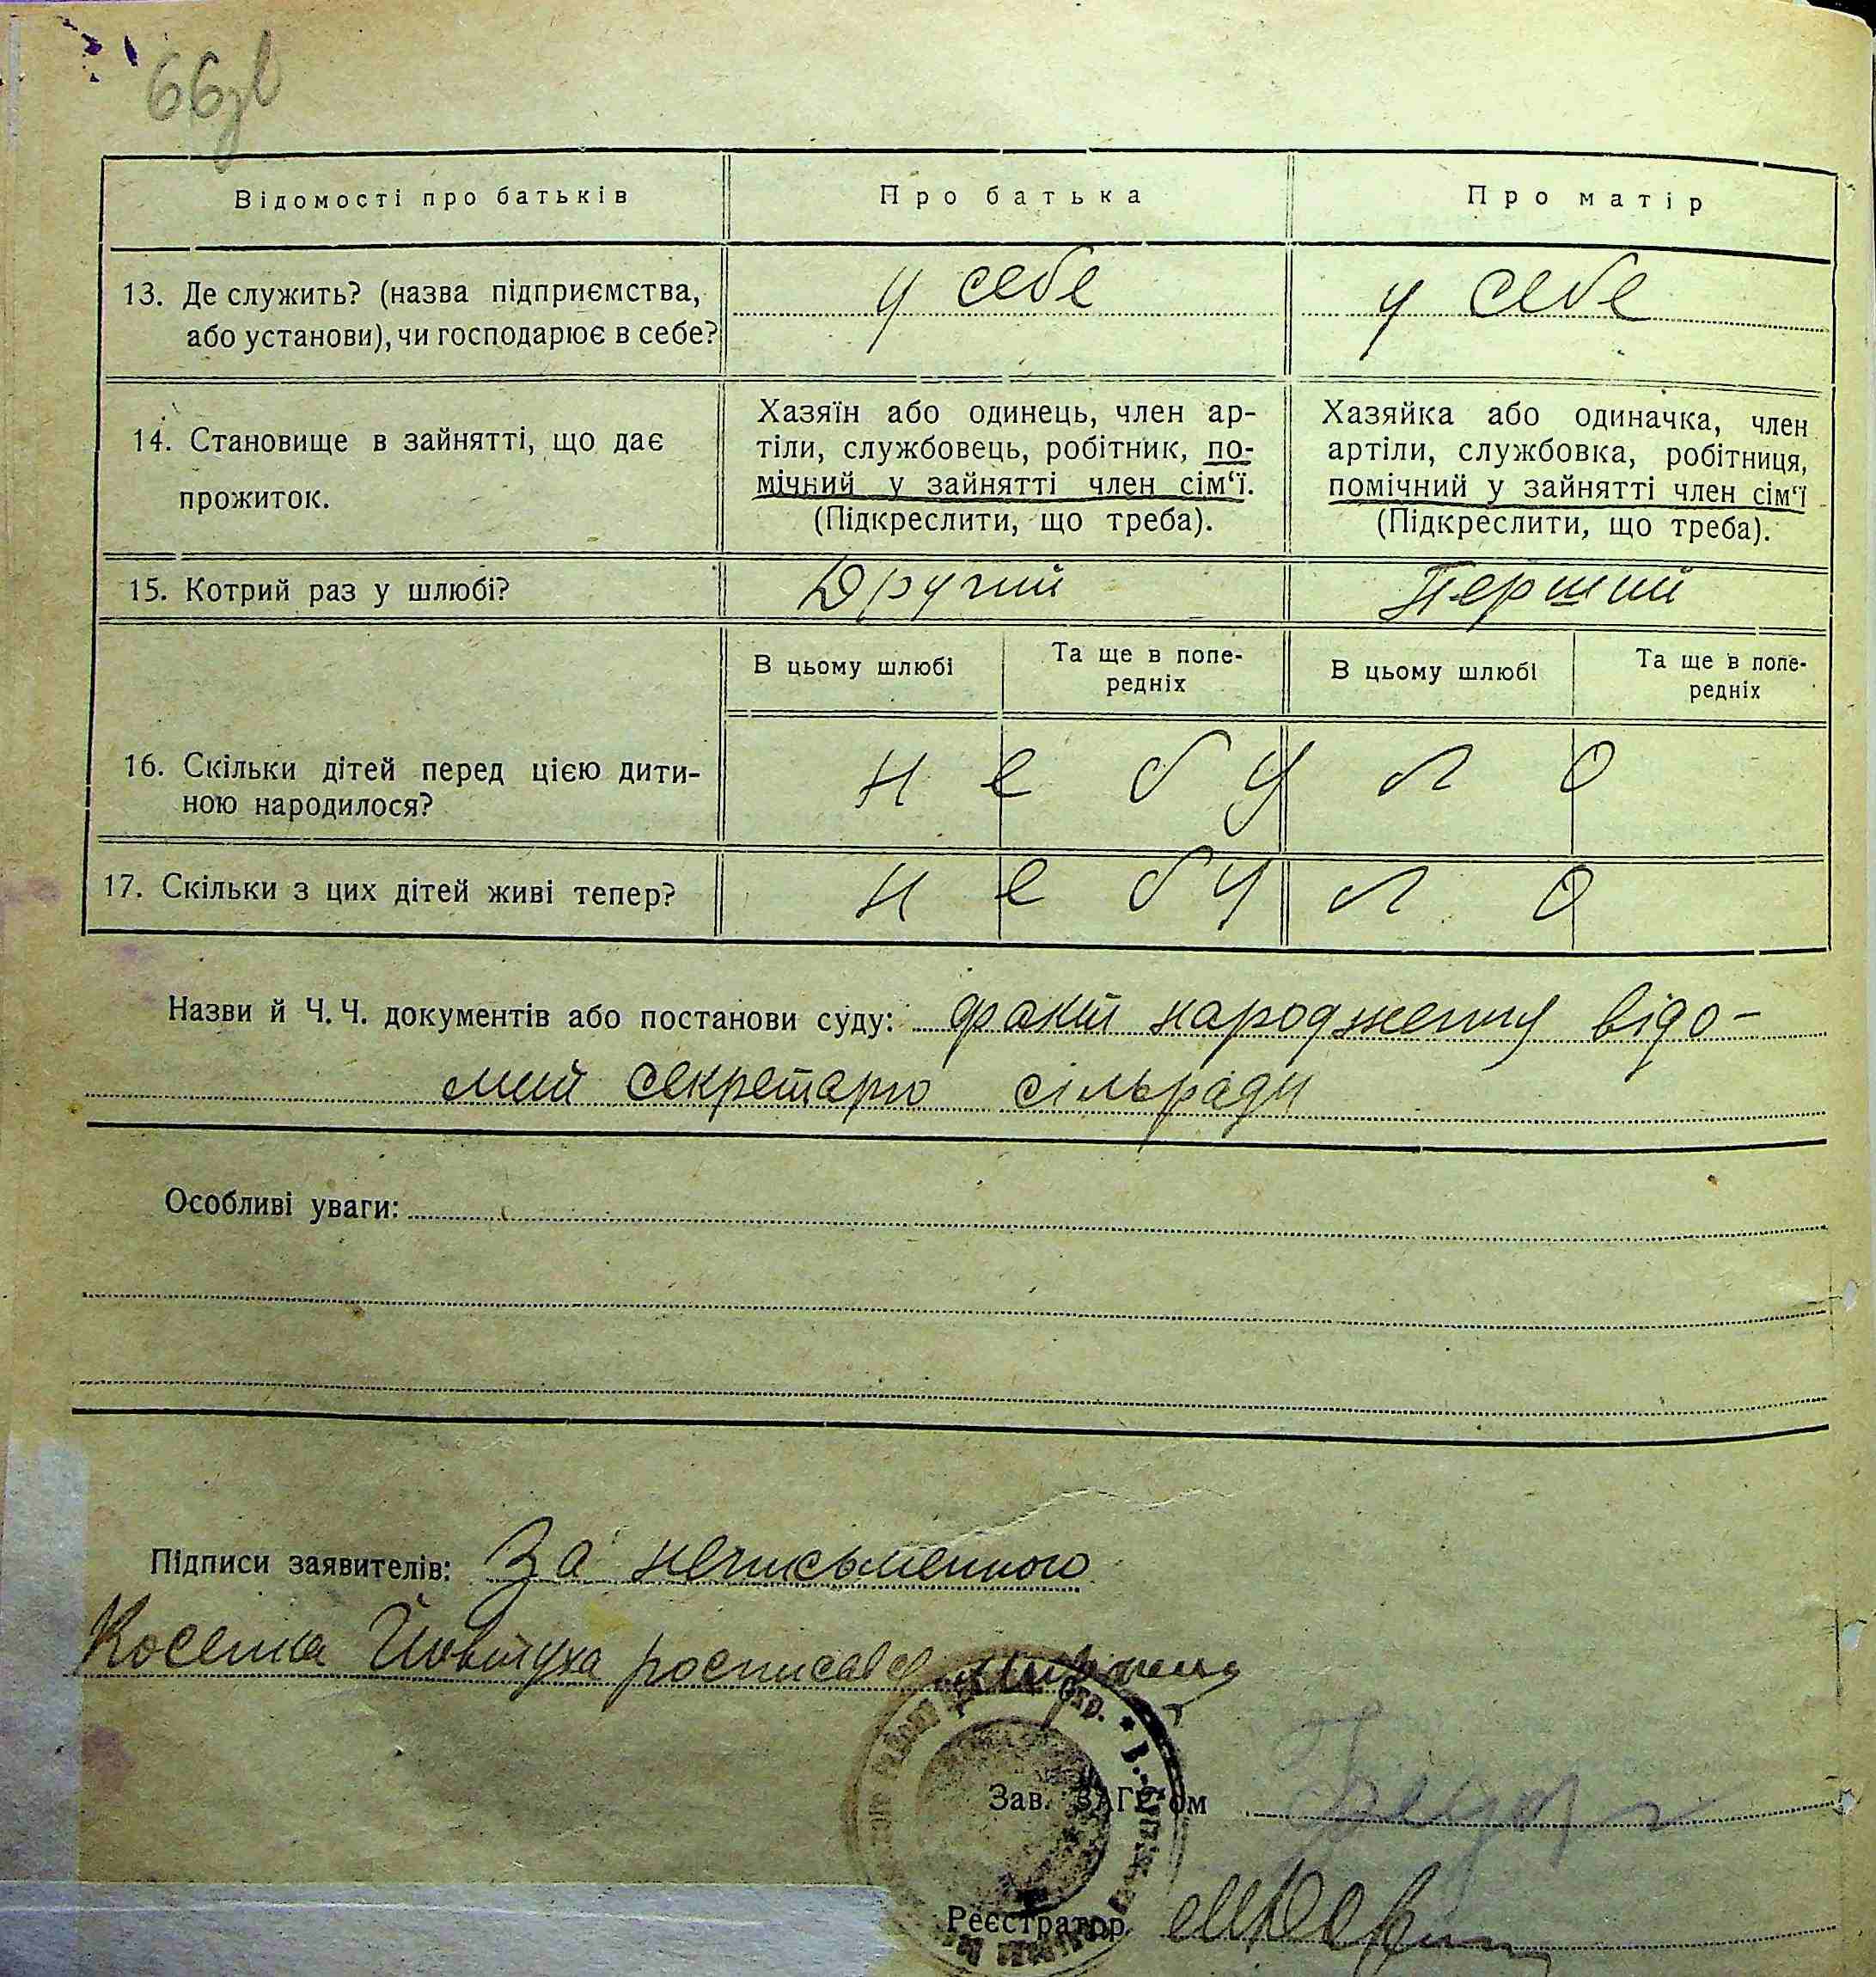 66зв
Відомості про батьків Про батька Про матір
13. Де служить? (назва підприємства, у себе у себе
або установи), чи господарює в себе?
14. Становище в зайнятті, що дає
прожиток.
Хазяїн або одинець, член ар-
тіли, службовець, робітник, по-
мічний у зайнятті член сім‘ї.
(Підкреслити, що треба).
Хазяйка або одиначка, член
артіли, службовка, робітниця,
помічний у зайнятті член сім‘ї
(Підкреслити, що треба).
15. Котрий раз у шлюбі? Другий Перший
В цьому шлюбі Та ще в попе-
редніх
В цьому шлюбі Та ще в попе-
редніх
16. Скільки дітей перед цією дити-
ною народилося?
не було
17. Скільки з цих дітей живі тепер? не було
Назви й Ч. Ч. документів або постанови суду: факт народження відо-
мий секретарю сільради
Особливі уваги:
Підписи заявителів: За неписьменного
Косенка Йовтуха росписався
Зав. ЗАГС‘ом
Реєстратор